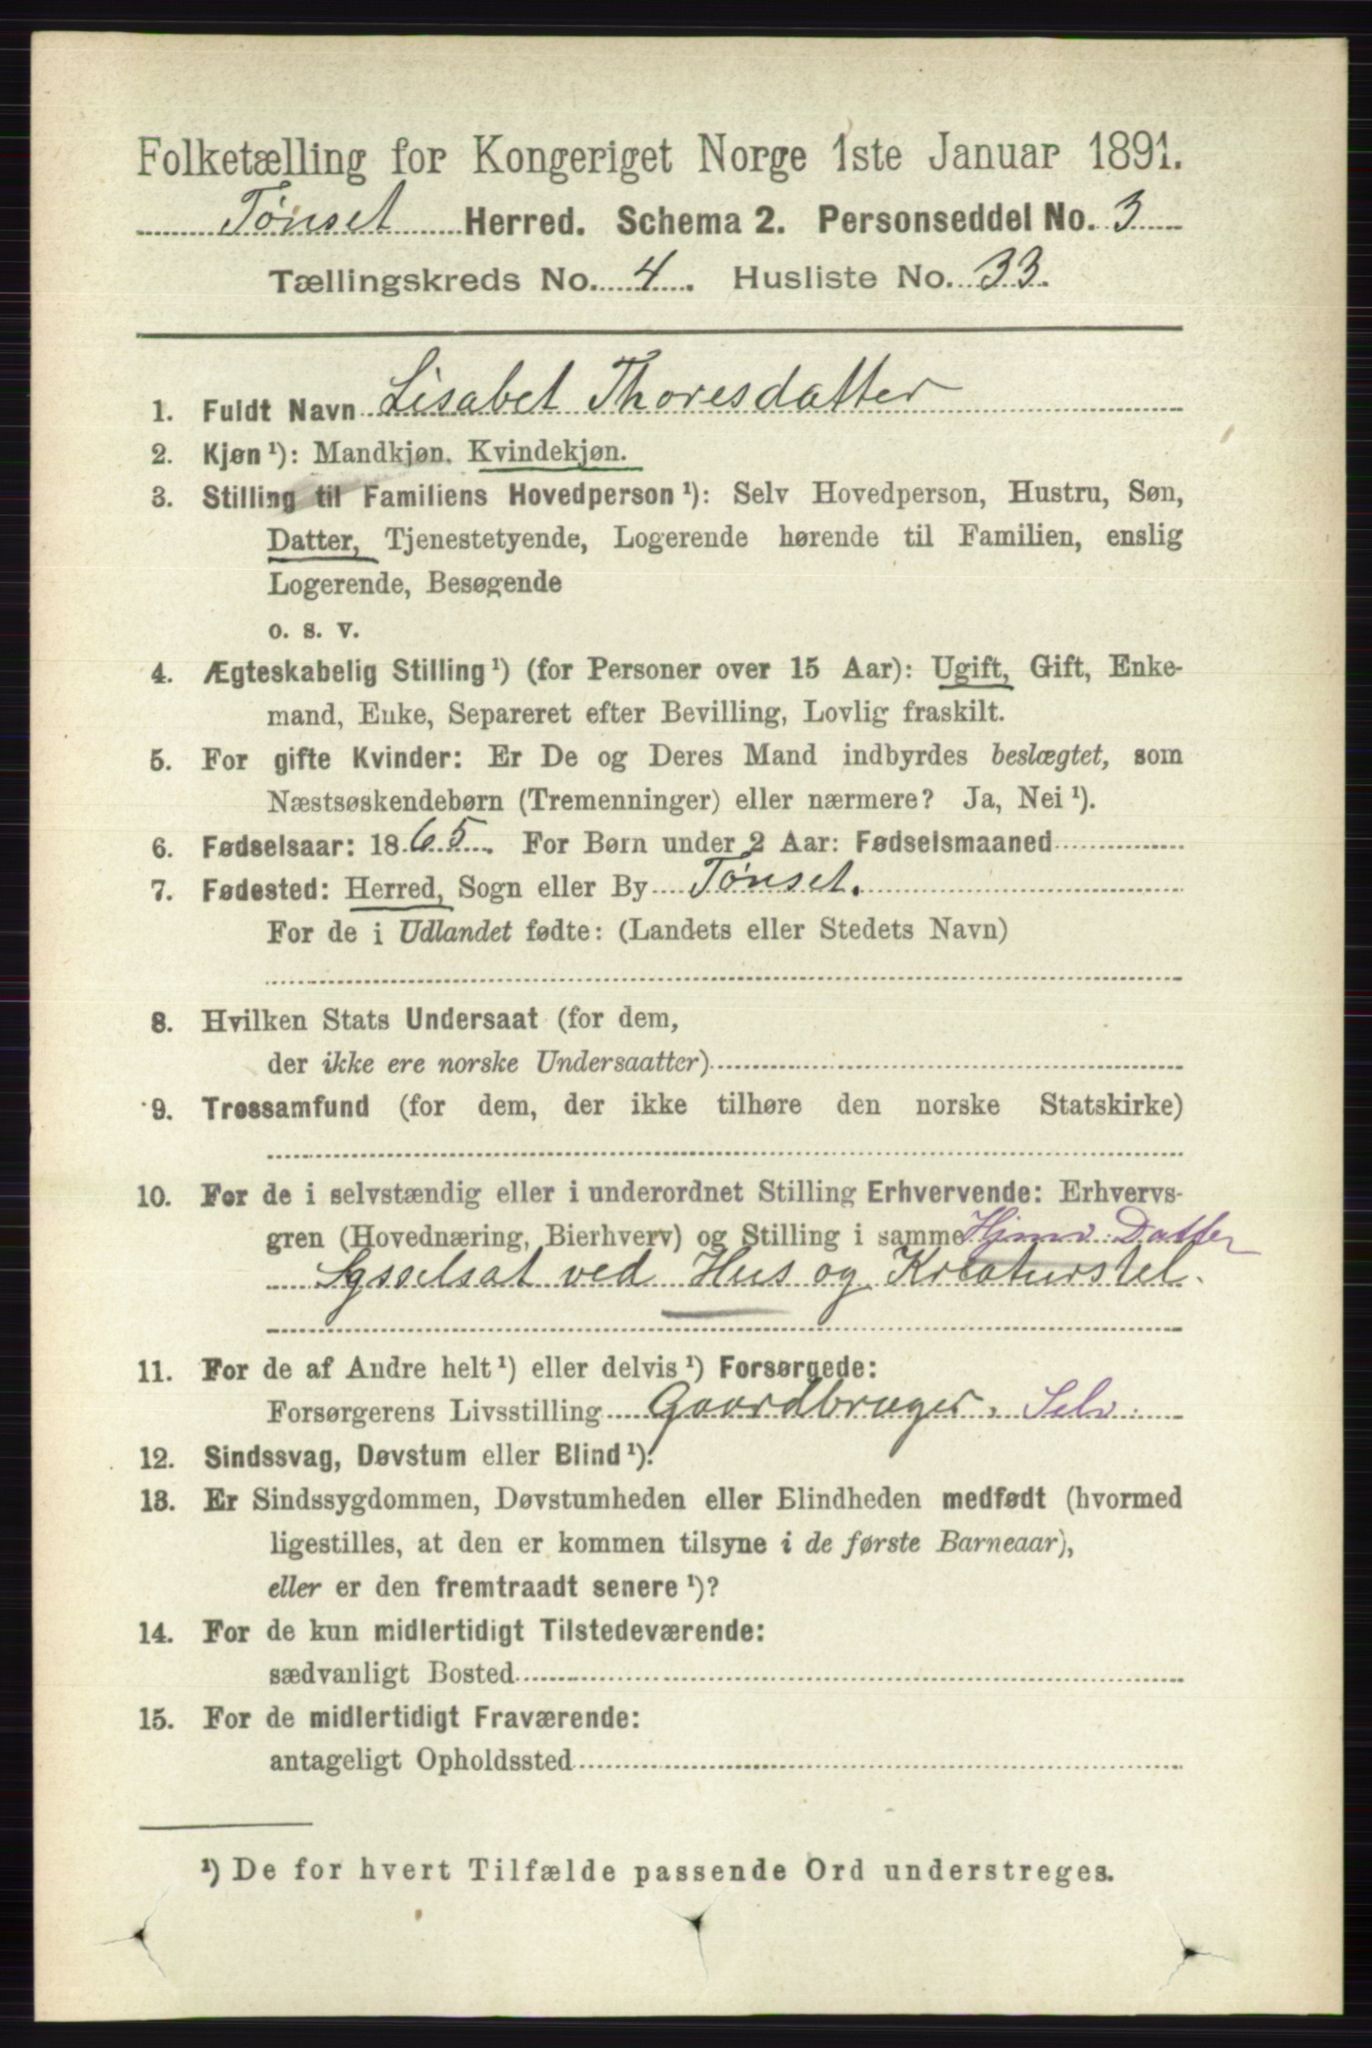 Folketælling for Kongeriget Norge 1ste Januar 1891.
Tønset Herred. Schema 2. Personseddel No. 3
Tællingskreds No. 4. Husliste No. 33.
1. Fuldt Navn Lisabet Thoresdatter
2. Kjøn¹): Mandkjøn. Kvindekjøn.
3. Stilling til Familiens Hovedperson¹): Selv Hovedperson, Hustru, Søn,
Datter, Tjenestetyende, Logerende hørende til Familien, enslig
Logerende, Besøgende
o. s. v.
4. Ægteskabelig Stilling¹) (for Personer over 15 Aar): Ugift, Gift, Enke-
mand, Enke, Separeret efter Bevilling, Lovlig fraskilt.
5. For gifte Kvinder: Er De og Deres Mand indbyrdes beslægtet, som
Næstsøskendebørn (Tremenninger) eller nærmere? Ja, Nei¹).
6. Fødselsaar: 1865. For Børn under 2 Aar: Fødselsmaaned
7. Fødested: Herred, Sogn eller By Tønset.
For de i Udlandet fødte: (Landets eller Stedets Navn)
8. Hvilken Stats Undersaat (for dem,
der ikke ere norske Undersaatter)
9. Trossamfund (for dem, der ikke tilhøre den norske Statskirke)
10. For de i selvstændig eller i underordnet Stilling Erhvervende: Erhvervs-
gren (Hovednæring, Bierhverv) og Stilling i samme Hjmv. Datter
Sysselsat ved Hus og Kreaturstel.
11. For de af Andre helt¹) eller delvis¹) Forsørgede:
Forsørgerens Livsstilling Gaardbruger. Selv.
12. Sindssvag, Døvstum eller Blind¹).
13. Er Sindssygdommen, Døvstumheden eller Blindheden medfødt (hvormed
ligestilles, at den er kommen tilsyne i de første Barneaar),
eller er den fremtraadt senere¹)?
14. For de kun midlertidigt Tilstedeværende:
sædvanligt Bosted
15. For de midlertidigt Fraværende:
antageligt Opholdssted
¹) De for hvert Tilfælde passende Ord understreges.